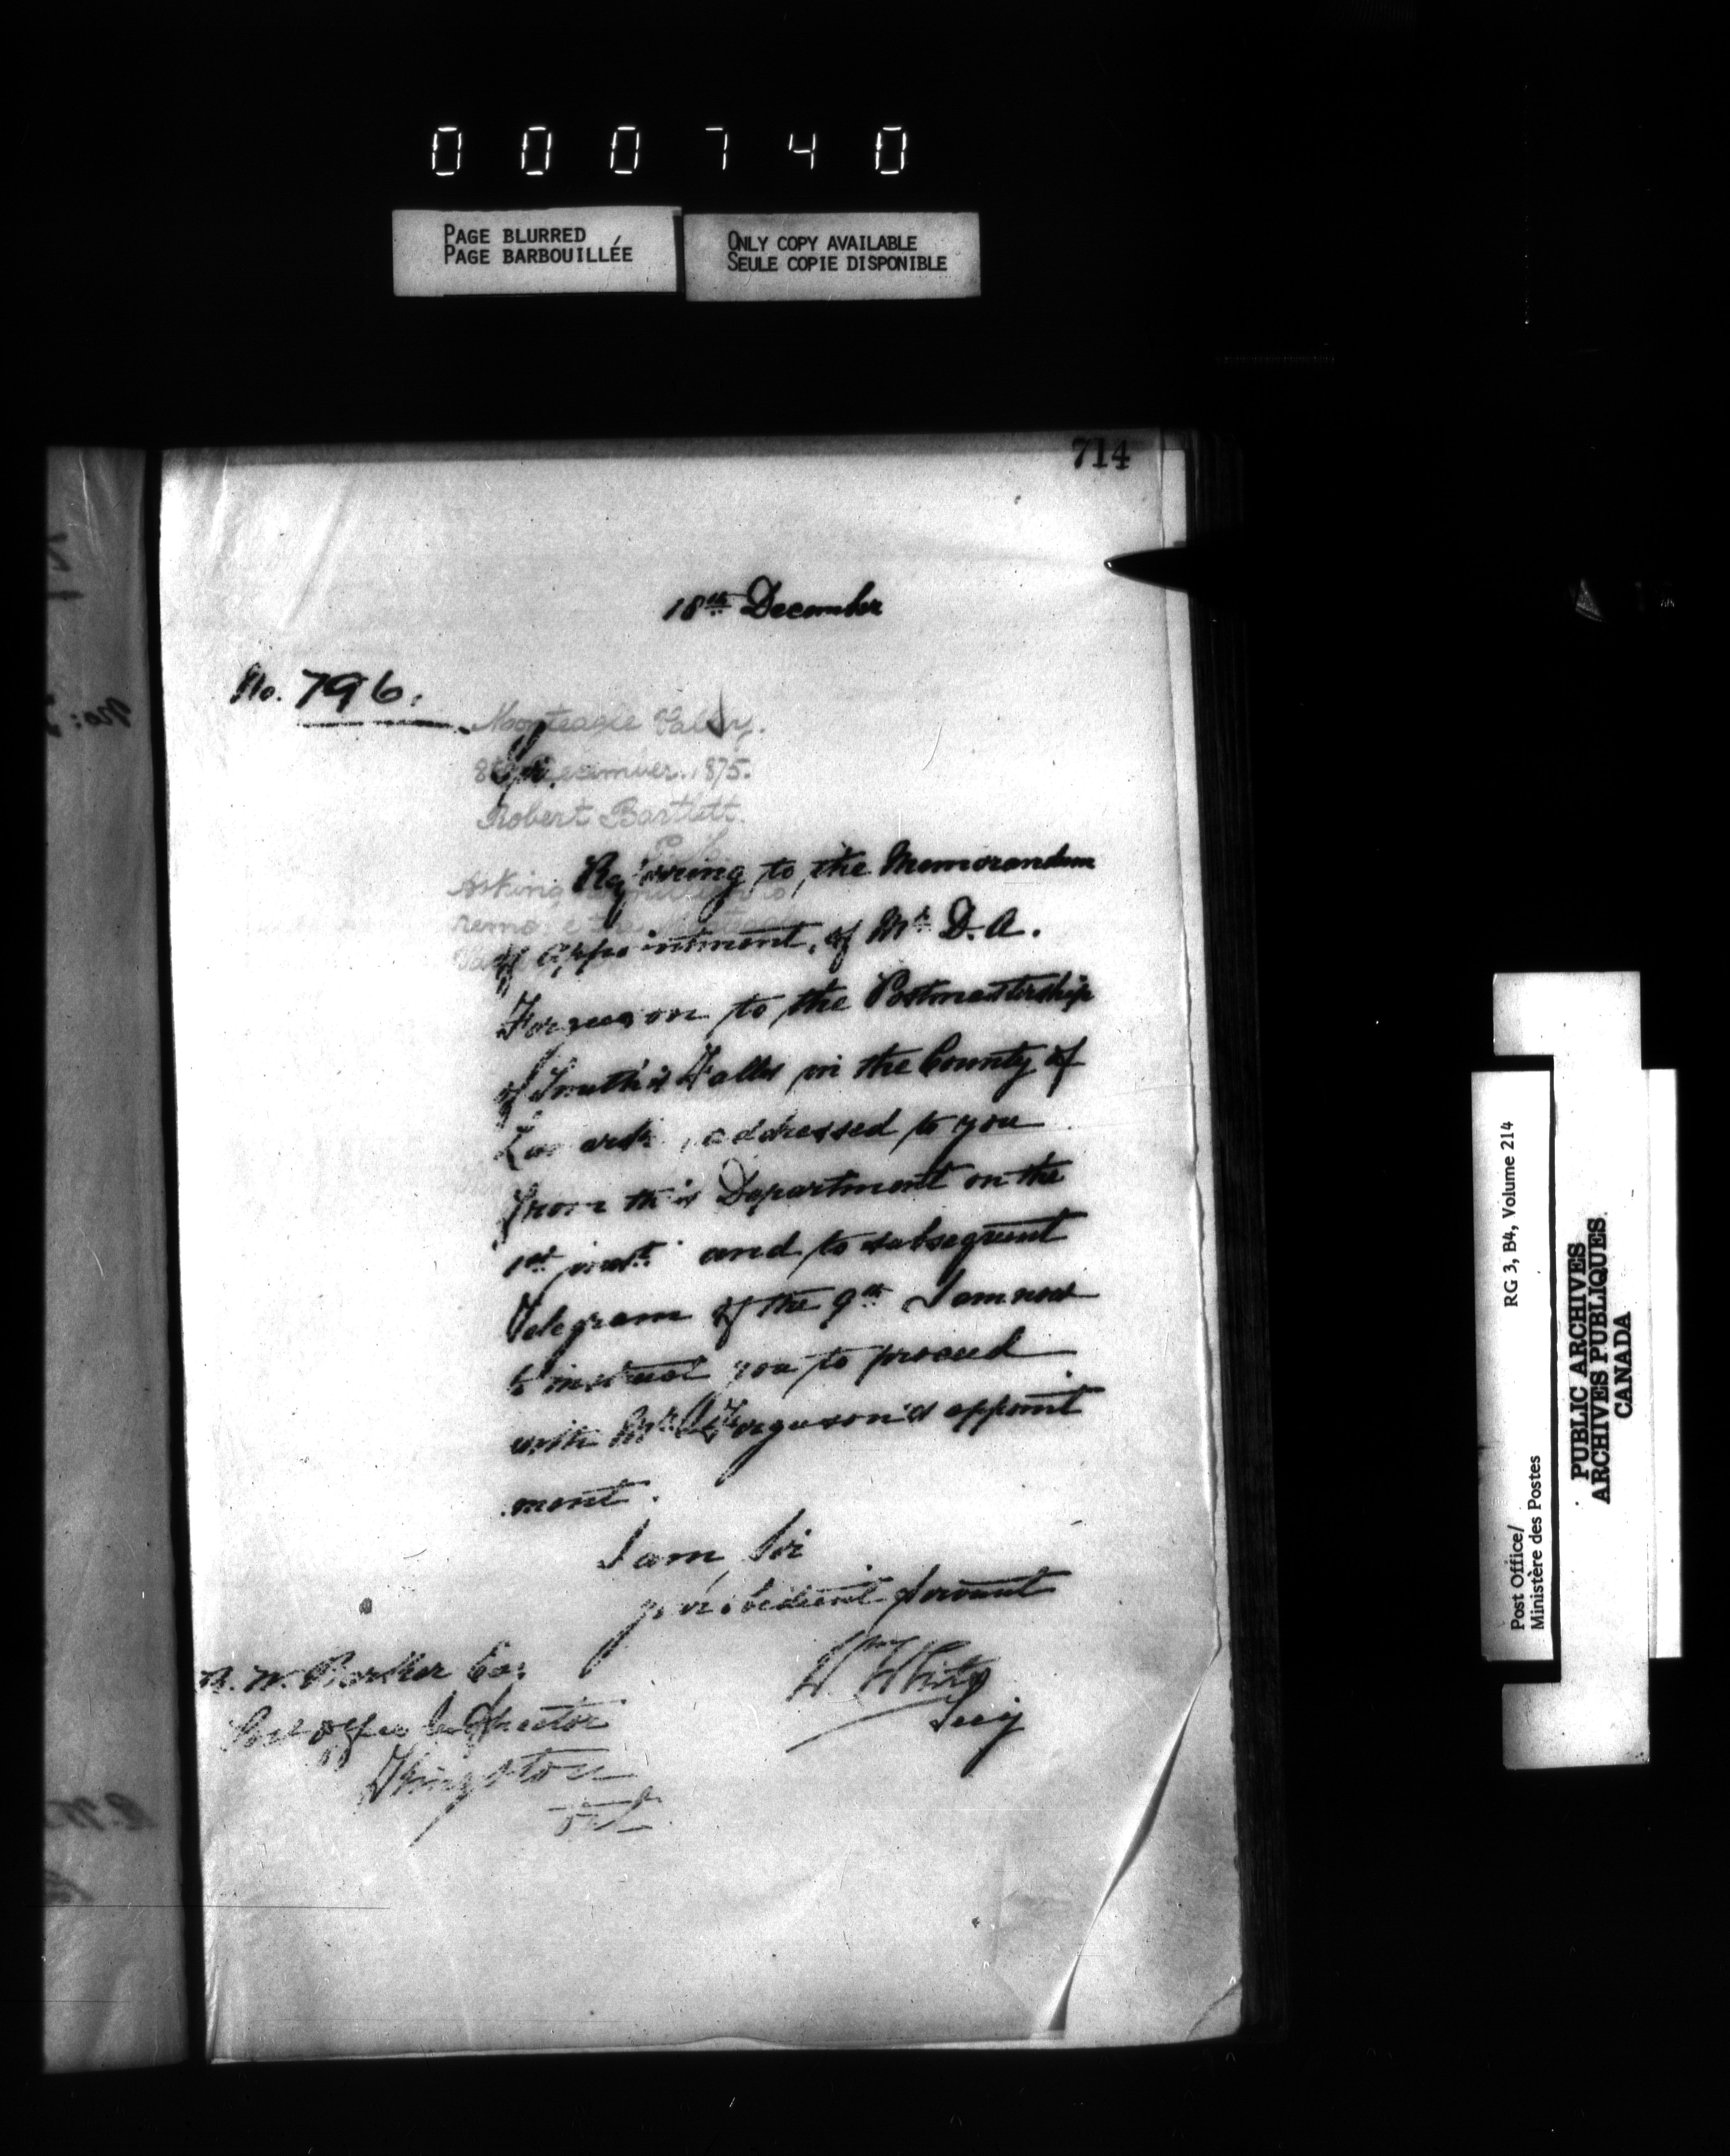 000740
PAGE BLURRED
PAGE BARBOUILLÉE
ONLY COPY AVAILABLE
SEULE COPIE DISPONIBLE
714
18th December
No. 796.
Monteagle Valley.
8th December. 1875.
Robert Bartlett.
Sir,
Asking
Referring to the Memorandum
of appointment, of Mr D. A.
Ferguson to the Postmastership
of Smith's Falls in the County of
Lanark, addressed to you
from this Department on the
1st inst. and to subsequent
Telegram of the 9th I am now
to instruct you to proceed
with Mr Ferguson's appoint
ment.
I am, Sir
your obedient Servant
Wm White
Secy
R. W. Barker Esq
Post Office Inspector
Kingston
Ont
RG 3, B4, Volume 214
Post Office/
Ministère des Postes
PUBLIC ARCHIVES
ARCHIVES PUBLIQUES
CANADA